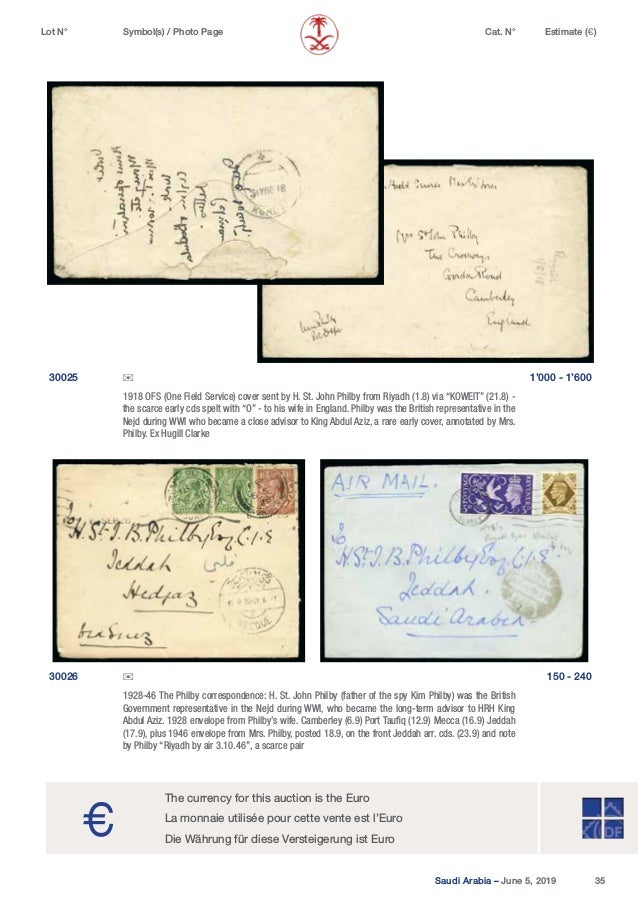 Lot N° Symbol(s) / Photo Page Cat. N° Estimate (€)
Mrs St John Philby
The Crossways
Camberley
England
30025 1'000 - 1'600
1918 OFS (One Field Service) cover sent by H. St. John Philby from Riyadh (1.8) via “KOWEIT” (21.8) -
the scarce early cds spelt with “O” - to his wife in England. Philby was the British representative in the
Nejd during WWI who became a close advisor to King Abdul Aziz, a rare early cover, annotated by Mrs.
Philby. Ex Hugill Clarke
To
H. St. J. B. Philby Esq. C.I.E
Jeddah
Hedjaz
via Suez
AIR MAIL.
To
H. St. J. B. Philby Esq. C.I.E.
Jeddah.
Saudi Arabia.
30026 150 - 240
1928-46 The Philby correspondence: H. St. John Philby (father of the spy Kim Philby) was the British
Government representative in the Nejd during WWI, who became the long-term advisor to HRH King
Abdul Aziz. 1928 envelope from Philby’s wife. Camberley (6.9) Port Taufiq (12.9) Mecca (16.9) Jeddah
(17.9), plus 1946 envelope from Mrs. Philby, posted 18.9, on the front Jeddah arr. cds. (23.9) and note
by Philby “Riyadh by air 3.10.46”, a scarce pair
€
The currency for this auction is the Euro
La monnaie utilisée pour cette vente est l’Euro
Die Währung für diese Versteigerung ist Euro
DF
Saudi Arabia – June 5, 2019 35